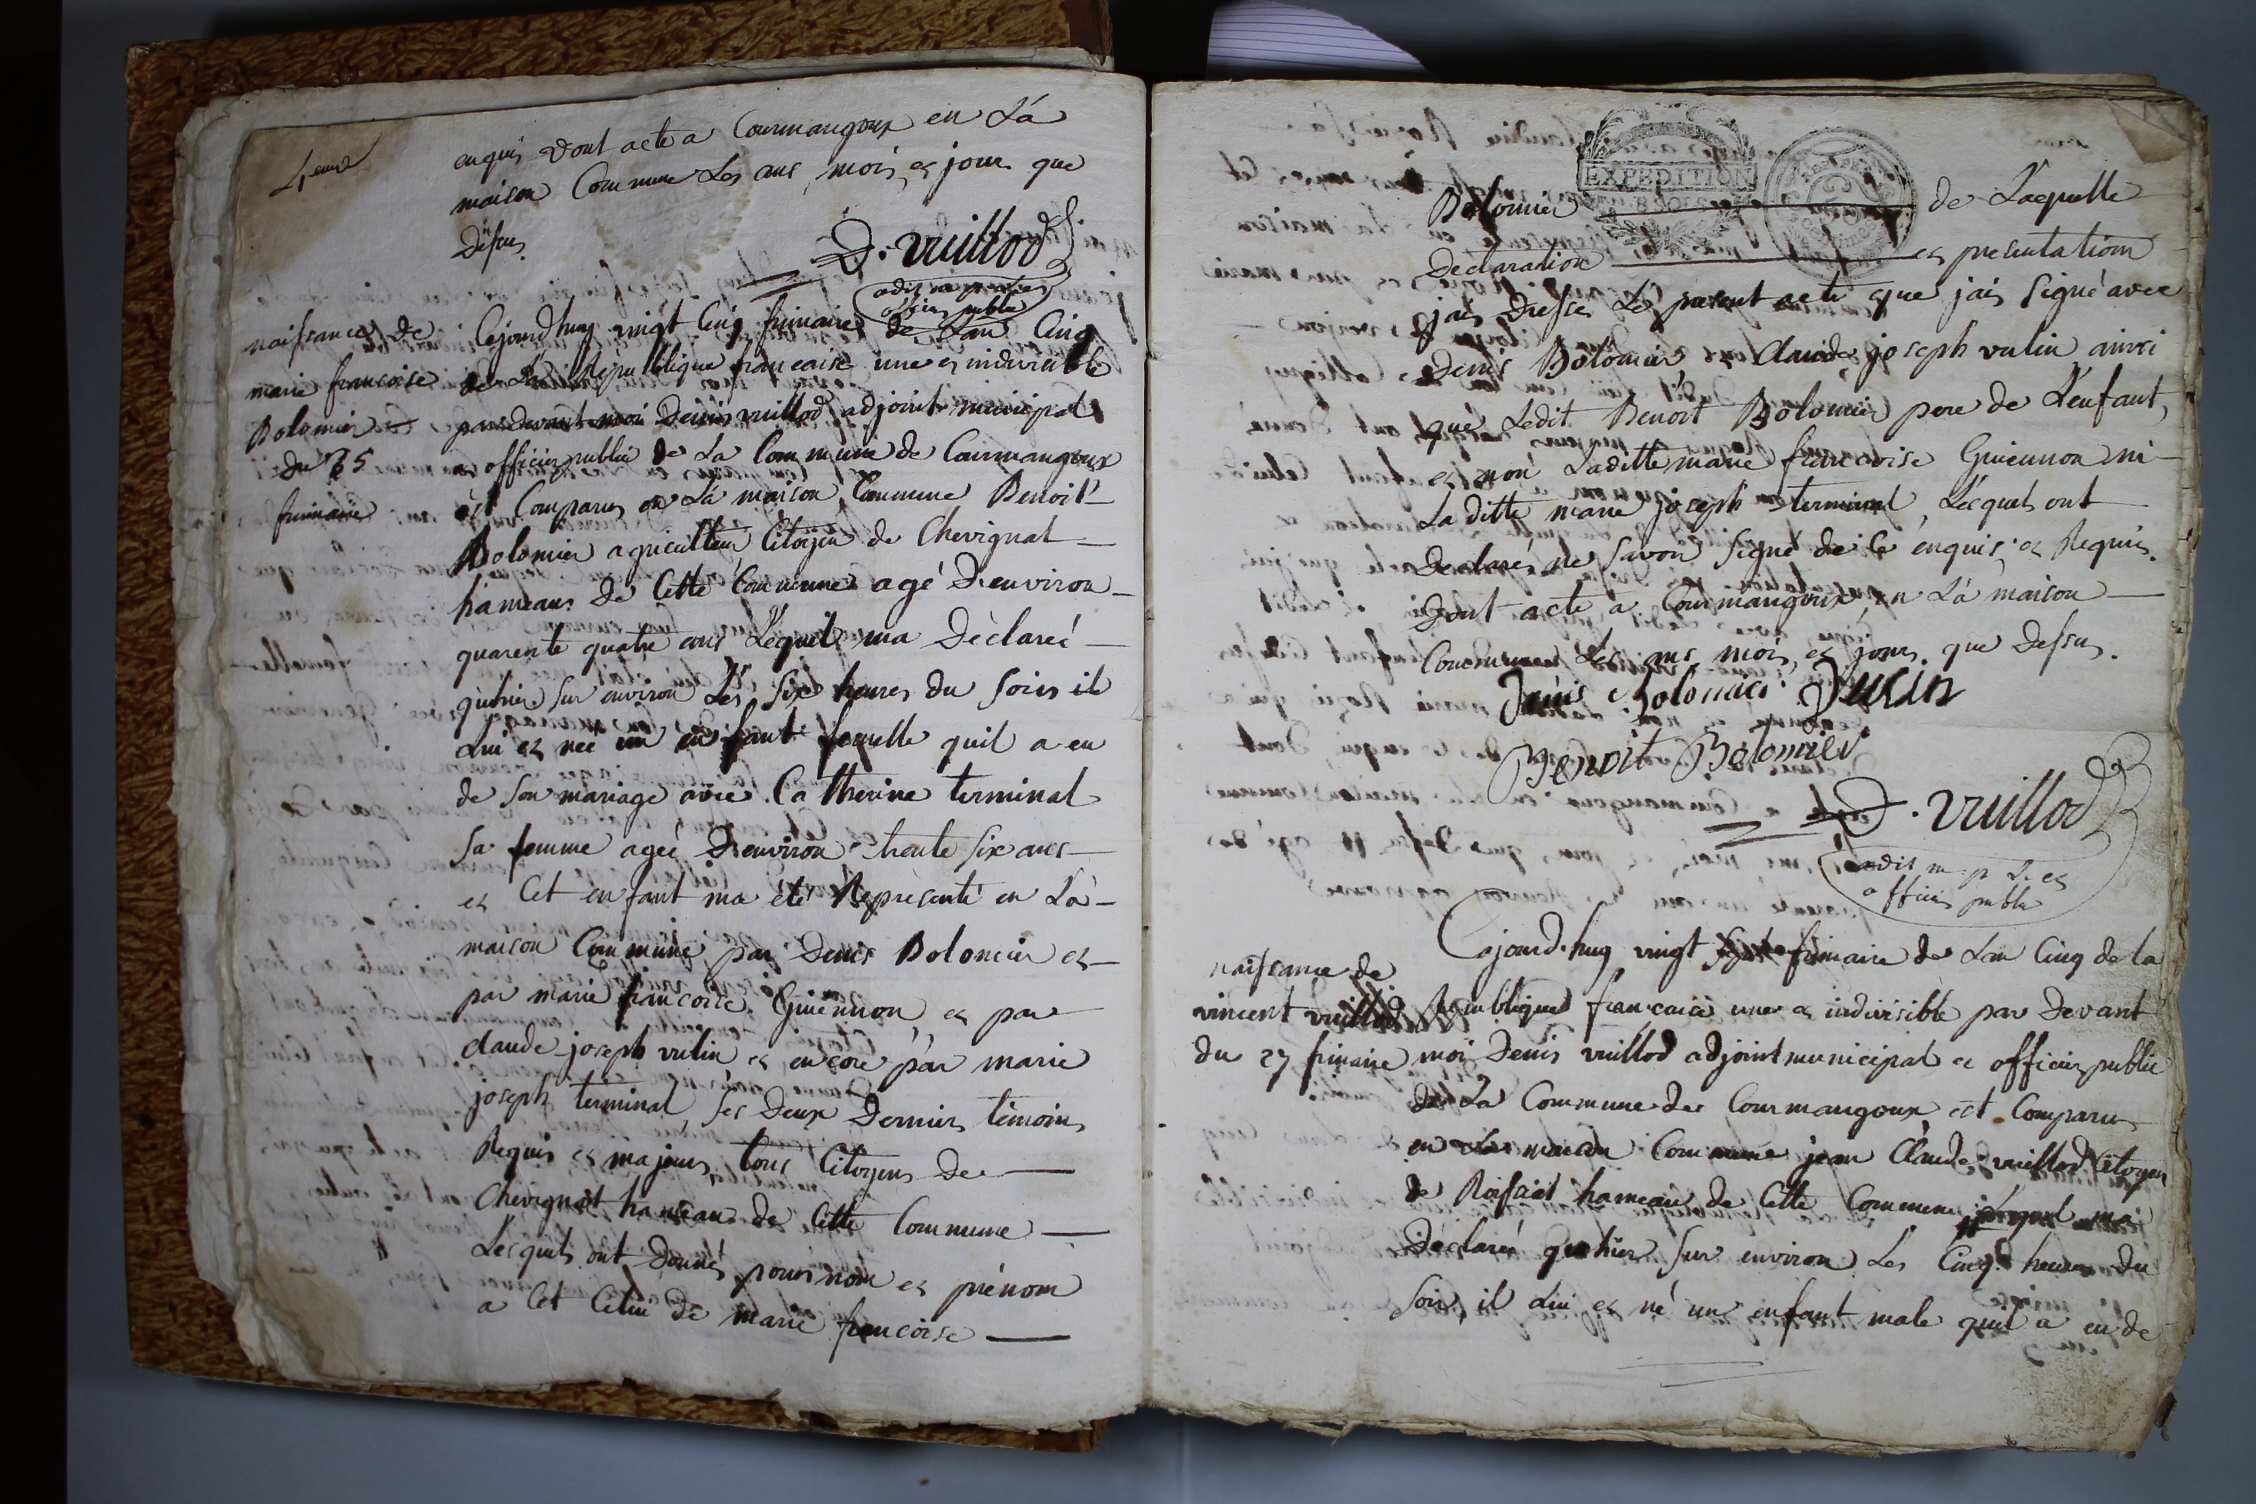 4eme
enquis dont acte a Courmangoux en Là
maison Commune Les ans, mois, et jour que
dessus.
D. vuillod
adjt m. p et
officier public
naissance de
marie francoise
Bolomier
du 25
frimaire
Cejourdhuy vingt Cinq frimaire de Lan Cinq
de Là République francaise une et indivisible
par devant moi Denis vuillod adjoint municipal
et officier public de La Commune de Courmangoux
est Comparu en Là maison Commune Benoit
Bolomier agriculteur Citoyen de Chevignat
hameau de Cette Commune agé D'environ
quarente quatre ans Lequel ma Déclaré
qu'hier sur environ Les Six heures du Soir il
Lui et née un enfant femelle quil a eu
de Son mariage avec Catherine terminal
Sa femme ageé D'environ trente Six ans
et Cet enfant ma été Représenté en Là
maison Commune par Denis Bolomier et
par marie francoise Guiennon et par
claude joseph vulin et encore par marie
joseph terminal, Ses Deux Derniers témoins
Requis et majeurs tous Citoyens de
Chevignat hameau de Cette Commune
Lesquels ont Donnés pour nom et prénom
a Cet Celui de marie francoise
EXPEDITION
Bolomier de Laquelle
Declaration et presentation
jais Dressé Le present acte que jais Signé avec
Denis Bolomier et Claude joseph vulin ainsi
que Ledit Benoit Bolomier pere de L'enfant,
et non Laditte marie francoise Guiennon ni
La ditte marie joseph terminal, Lesquels ont
Declarés ne Savoir Signé de Ce enquis et Requis.
Dont acte a Courmangoux en Là maison
Commune Les ans, mois, et jour que Dessus.
Denis Bolomier Vulin
Benoit Bolomier
D. vuillod
adjt m. p et
officier public
naissance de
vincent vuillod
du 27 frimaire
Cejourd'huy vingt Sept frimaire de Lan Cinq de la
République francaise une et indivisible par Devant
moi Denis vuillod adjoint municipal et officier public
de La Commune de Courmangoux est Comparu
en La maison Commune jean Claude vuillod Citoyen
de Roissiat hameau de Cette Commune Lequel ma
Déclaré qu'hier Sur environ Les Cinq heures Du
Soir il Lui et né un enfant male quil a eu de